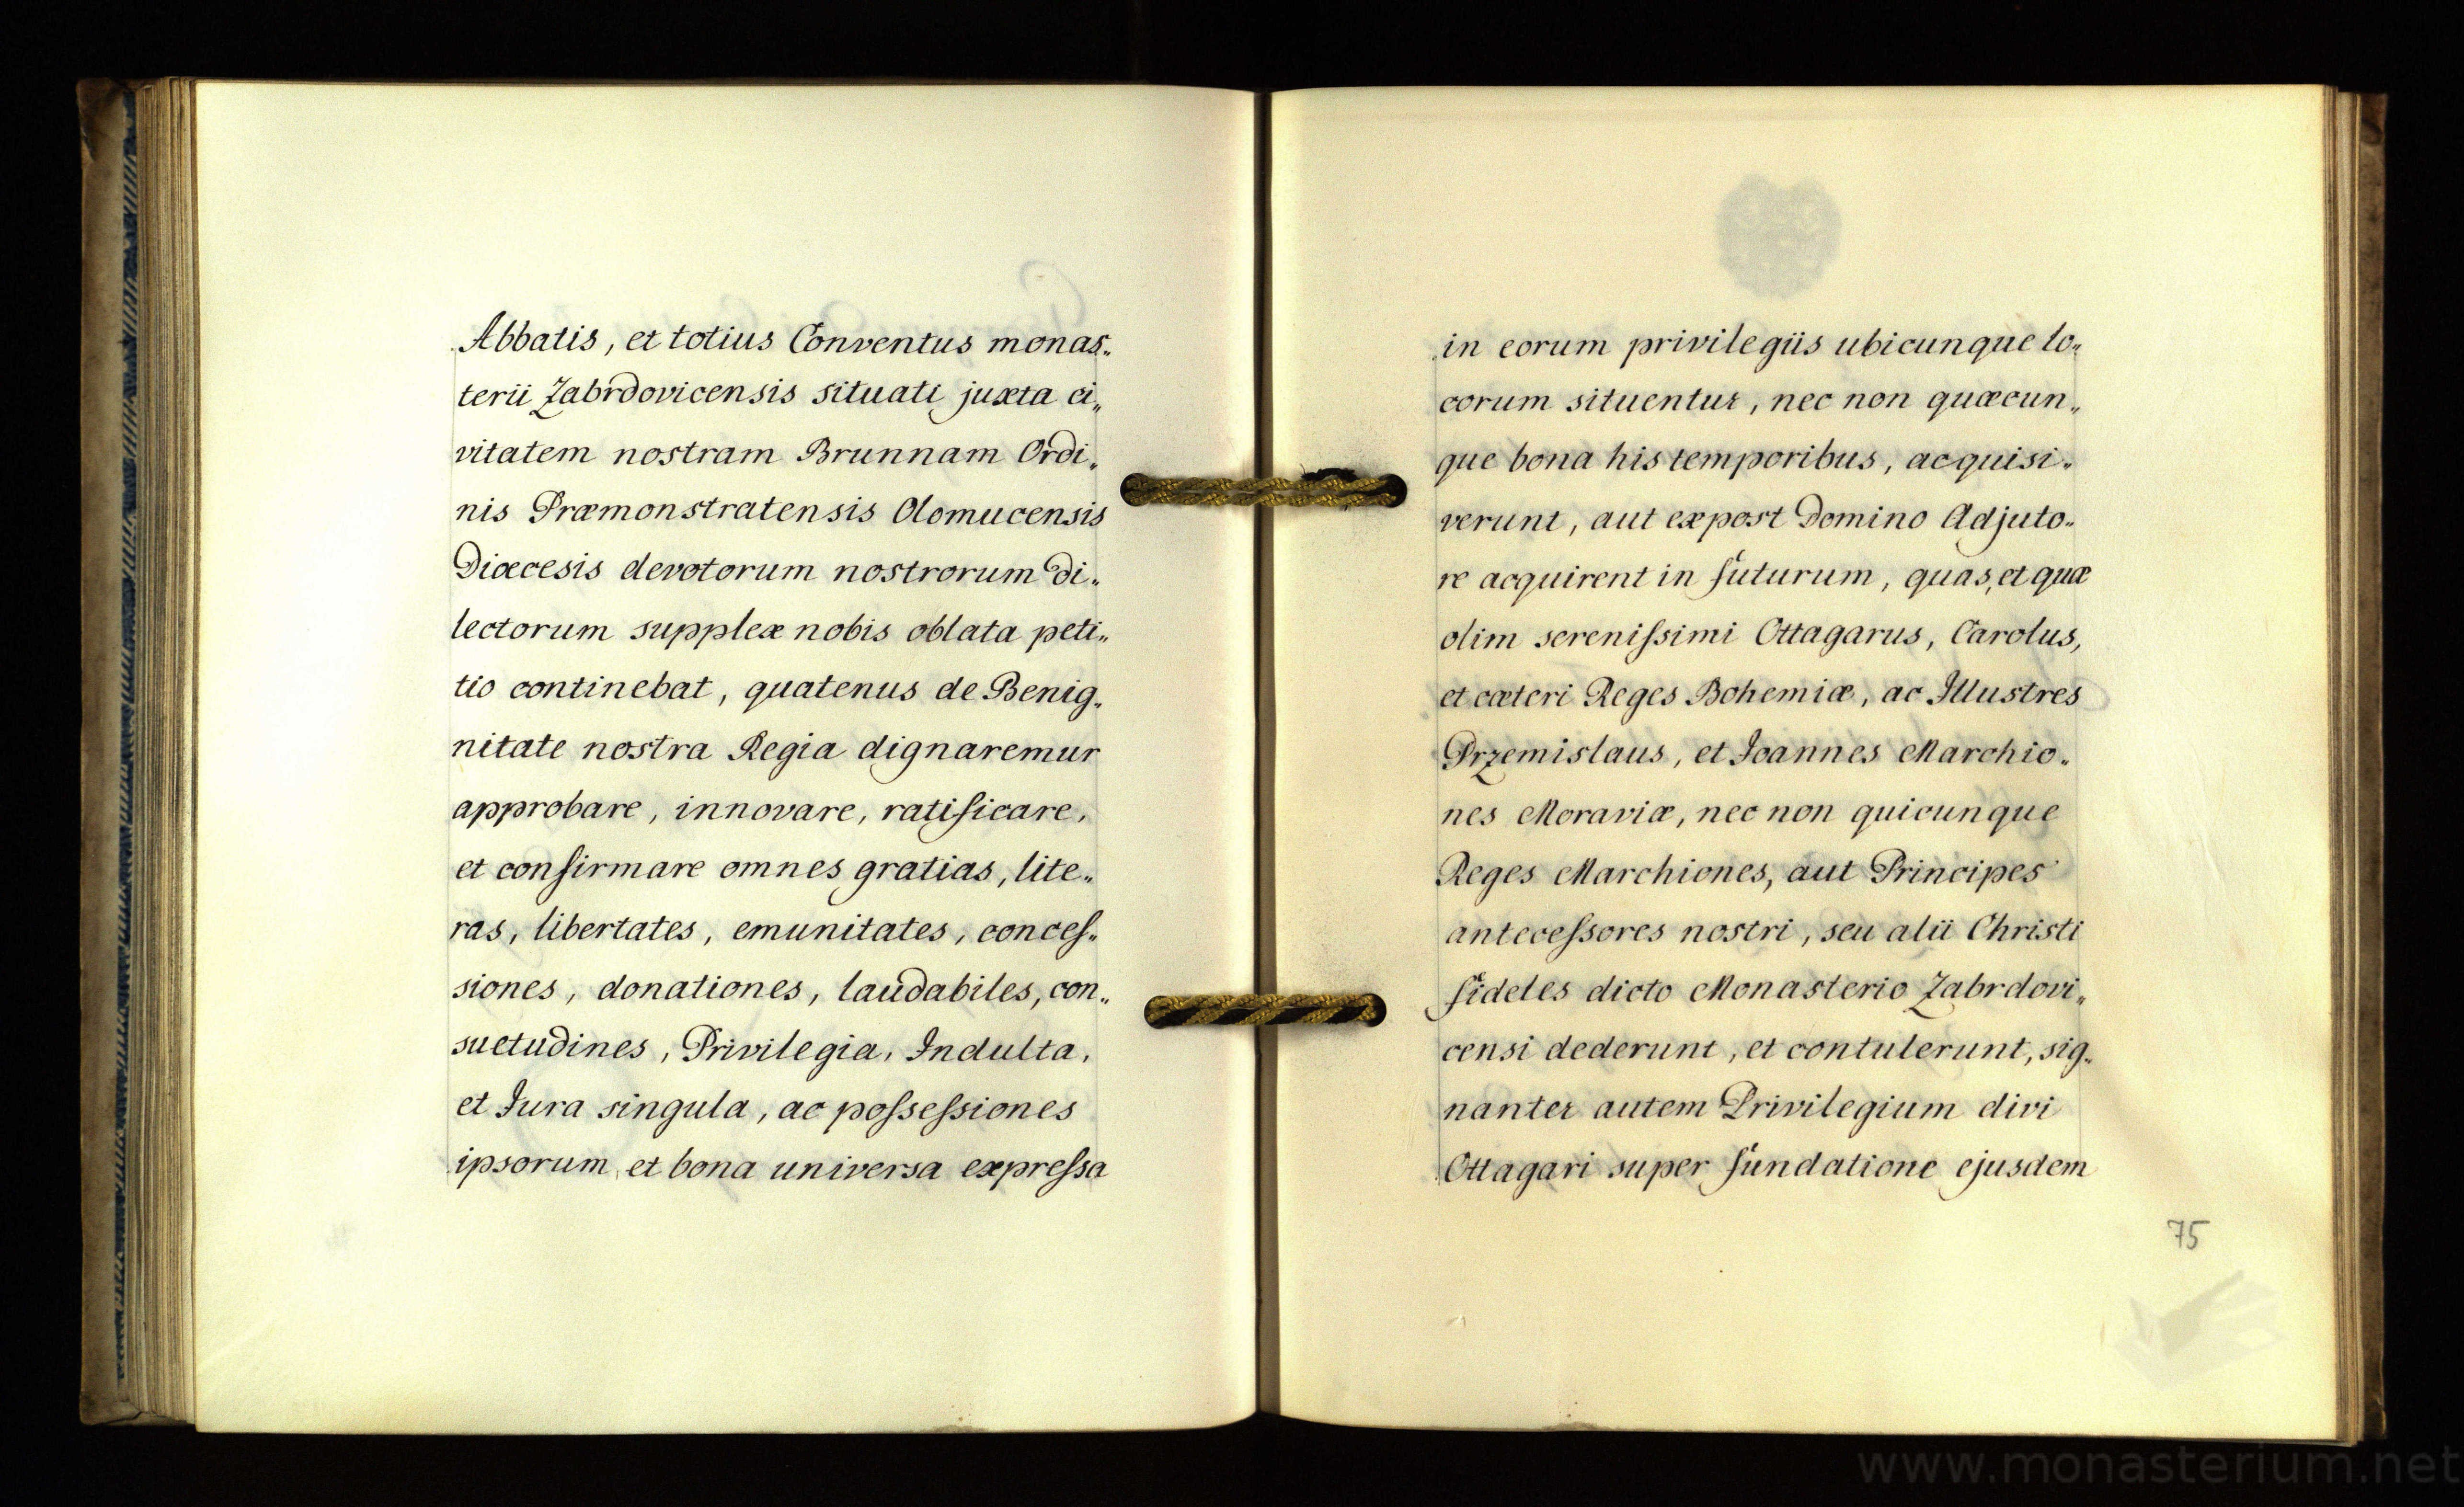 Abbatis, et totius Conventus monas„
terii Zabrdovicensis situati juxta ci„
vitatem nostram Brunnam Ordi„
nis Præmonstratensis Olomucensis
Diœcesis devotorum nostrorum di„
lectorum supplex nobis oblata peti„
tio continebat, quatenus de Benig„
nitate nostra Regia dignaremur
approbare, innovare, ratificare,
et confirmare omnes gratias, lite„
ras, libertates, emunitates, conceſ„
siones, donationes, laudabiles, con„
suetudines, Privilegia, Indulta,
et Jura singula, ac poſseſsiones
ipsorum, et bona universa expreſsa
in eorum privilegiis ubicunque lo„
corum situentur, nec non quæcun„
que bona his temporibus, acquisi„
verunt, aut expost Domino Adjuto„
re acquirent in futurum, quas, et quæ
olim sereniſsimi Ottagarus, Carolus,
et cæteri Reges Bohemiæ, ac Illustres
Przemislaus, et Joannes Marchio„
nes Moraviæ, nec non quicunque
Reges Marchiones, aut Principes
anteceſsores nostri, seu alii Christi
fideles dicto Monasterio Zabrdovi„
censi dederunt, et contulerunt, sig„
nanter autem Privilegium divi
Ottagari super fundatione ejusdem
75
www.monasterium.net